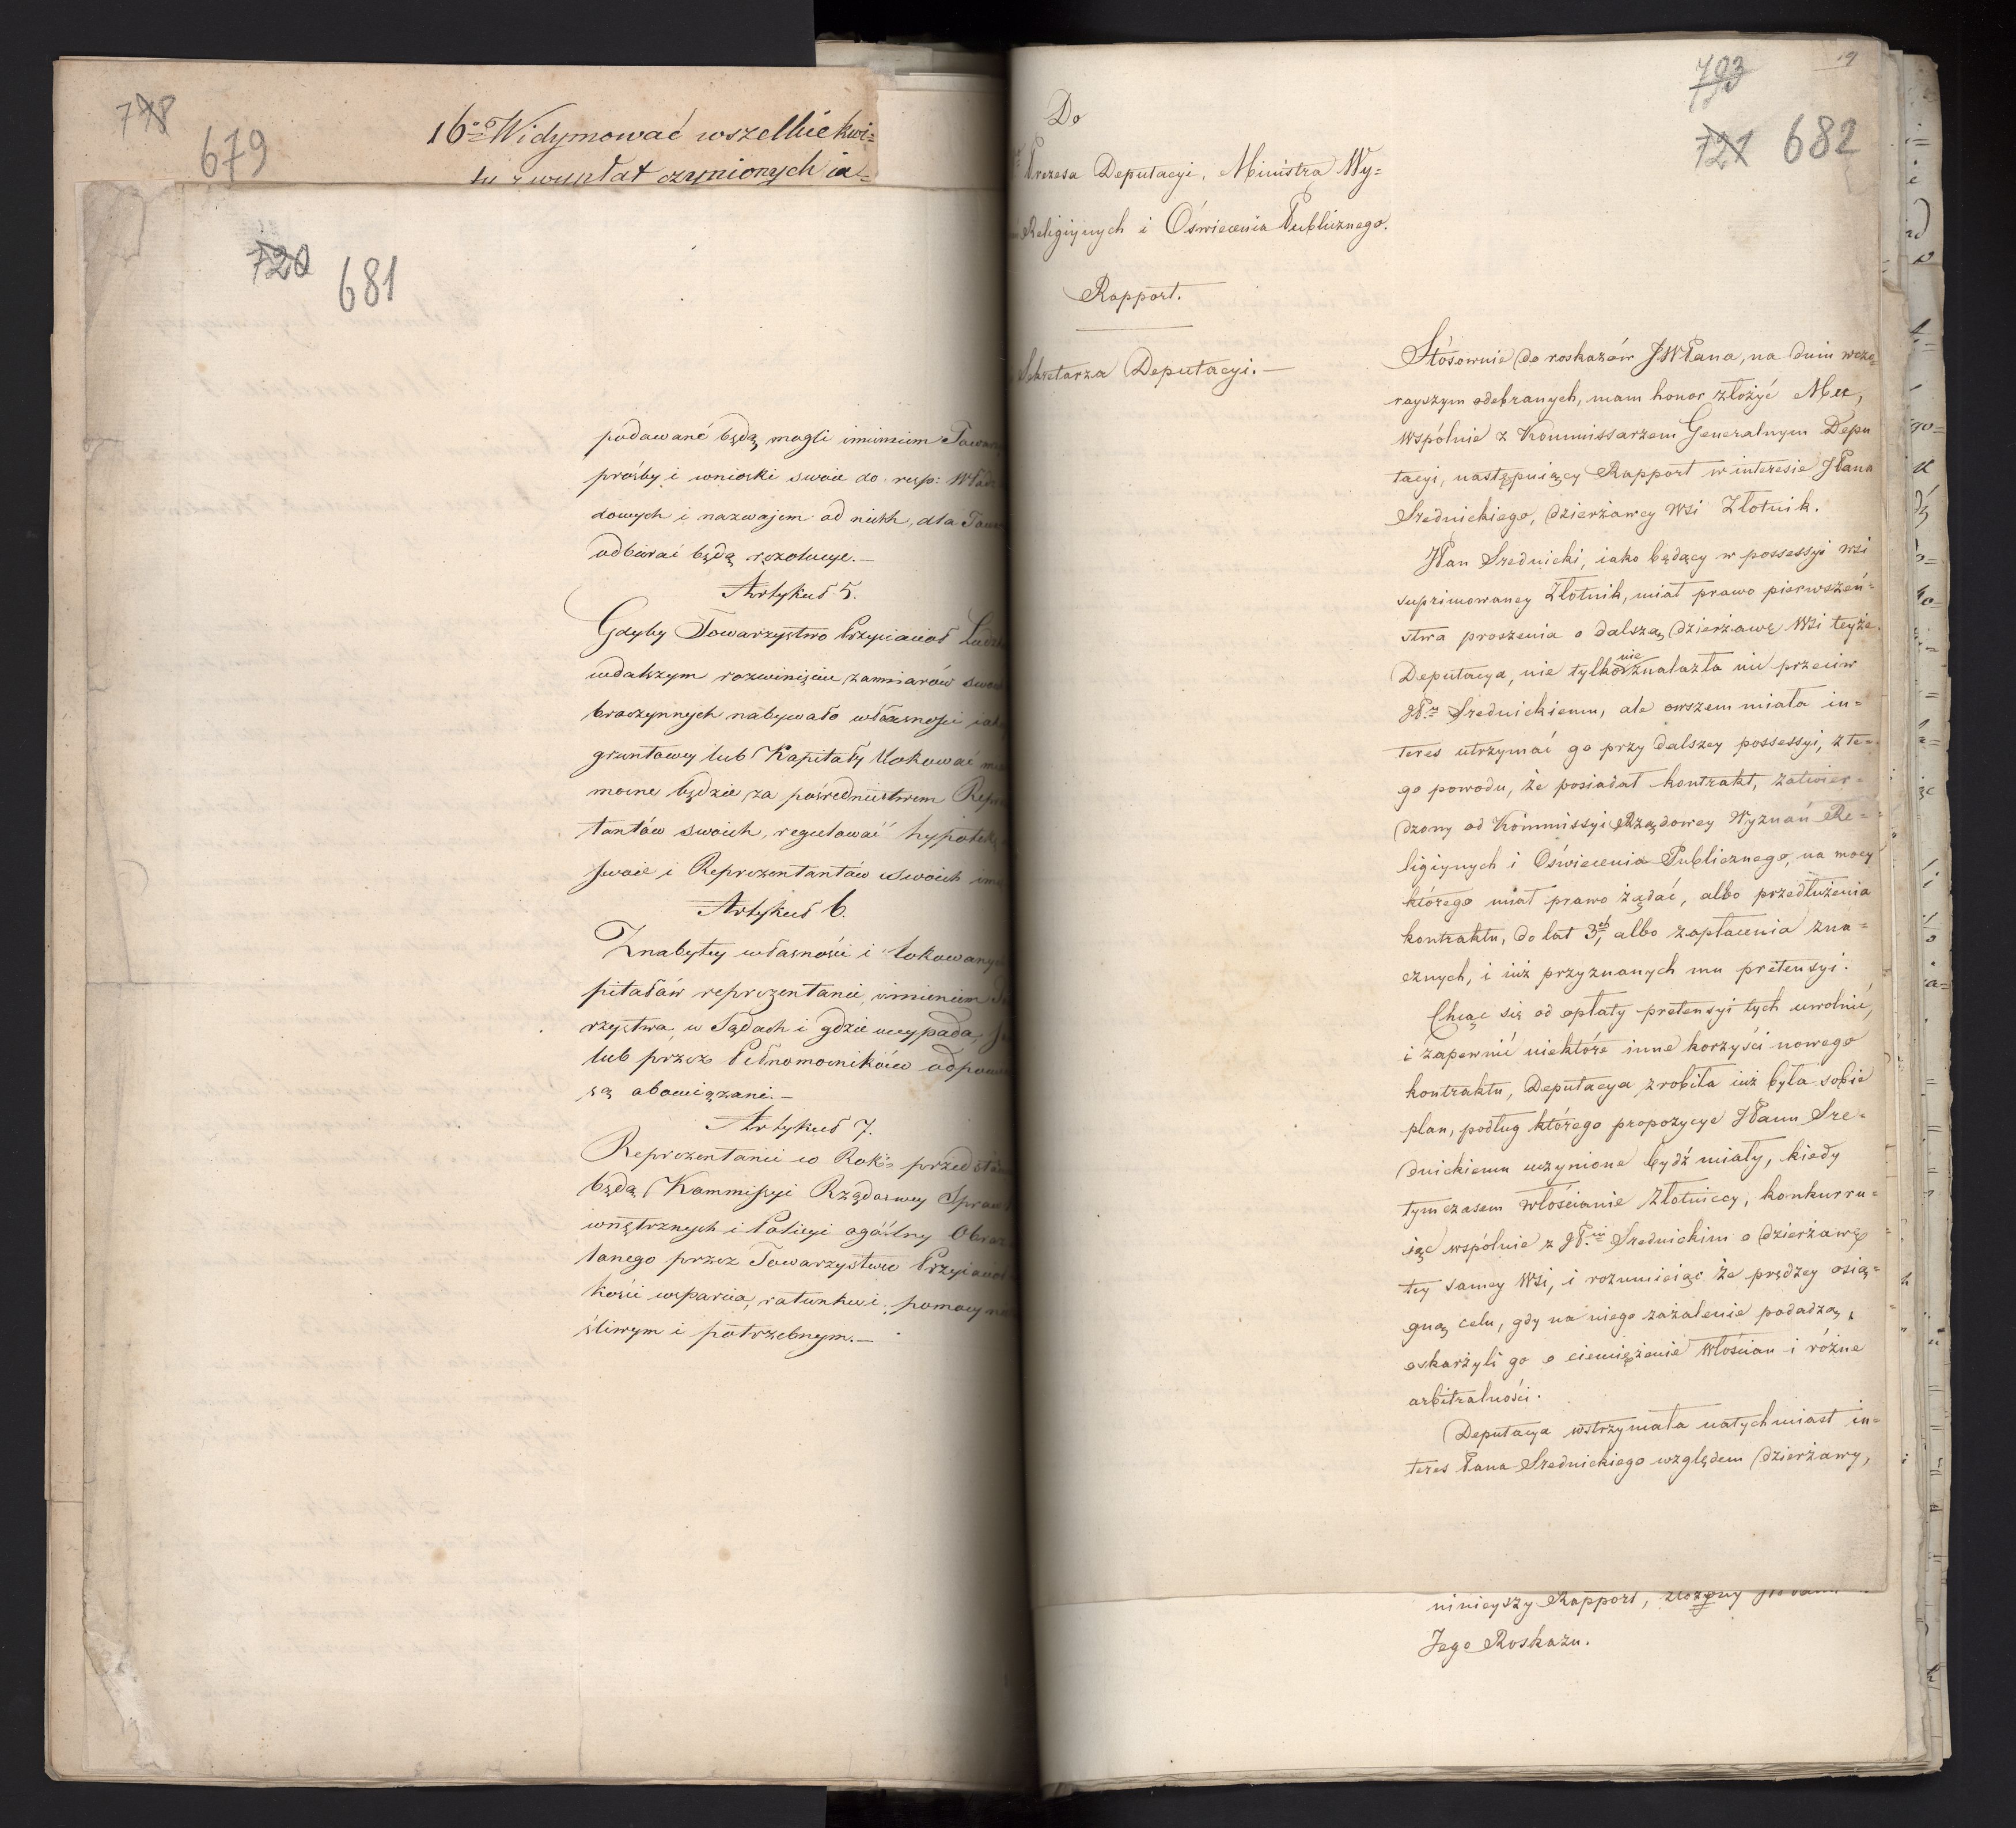 718
679
16o Widymować wszelkie kwi=
ty z wypłat czynionych ia=
720
681
podawane będą mogli imieniem
prośby i wnioski swoie do resp:
dowych i nazwajem od nichh, dla
odbierać będą rezolucye.—
Artykuł 5.
Gdyby Towarzystwo Przyiaciół
wdalszym rozwinięciu zamiarów
broczynnych nabywało własności
gruntowey lub Kapitały lokować
mocne będzie za pośrednictwem
tantów swoich, regulować hypotekę
swoie i Reprezentantów swoich
Artykuł 6.
Znabytey własności i lokowanych
pitałów reprezentanci, imieniem
rzystwa, w Sądach i gdzie wypada,
lub przez Pełnomocników
są obowiązani.—
Artykuł 7.
Reprezentanci co Rok przed
będą Kommissyi Rządowey Spraw
wnętrznych i Policyi ogólny
łanego przez Towarzystwo
kości wsparcia, ratunku i pomocy
śliwym i potrzebnym.—
19
793
721
682
Do
Prezesa Deputacyi, Ministra Wy=
Religiynych i Oświecenia Publicznego.
Rapport.
Sekretarza Deputacyi.—
Stósownie do roskazów JWPana, na dniu wczo=
rayszym odebranych, mam honor złożyć Mu,
wspólnie z Kommissarzem Generalnym Depu
tacyi, następuiący Rapport w interesie JPana
Srednickiego, dzierżawcy wsi Złotnik.
JPan Srednicki, iako będący w possessyi wsi
suprimowaney Złotnik, miał prawo pierwszeń=
stwa proszenia o dalszą dzierżawę wsi teyże.
Deputacya, nie tylko nie znalazła nic przeciw
JPu Srednickiemu, ale owszem miała in=
teres utrzymać go przy dalszey possessyi, z te=
go powodu, że posiadał kontrakt, zatwier=
dzony od Kommissyi Rządowey Wyznań Re=
ligiynych i Oświecenia Publicznego, na mocy
którego miał prawo żądać, albo przedłużenia
kontraktu, do lat 3ch, albo zapłacenia zna=
cznych, i iuż przyznanych mu pretensyi.
Chcąc się od opłaty pretensyi tych uwolnić,
i zapewnić niektóre inne korzyści nowego
kontraktu, Deputacya zrobiła iuż była sobie
plan, podług którego propozycye JPanu Sre=
dnickiemu uczynione bydź miały, kiedy
tymczasem włościanie Złotniccy, konkurru=
iąc wspólnie z JPm Srednickim o dzierżawę
tey samey wsi, i rozumieiąc że prędzey osią=
gną celu, gdy na niego zażalenie podadzą,
oskarżyli go o ciemiężenie włościan i różne
arbitralności.
Deputacya wstrzymała natychmiast in=
teres Pana Srednickiego względem dzierżawy,
ninieyszy Rapport, złożony
Jego Roskazu.